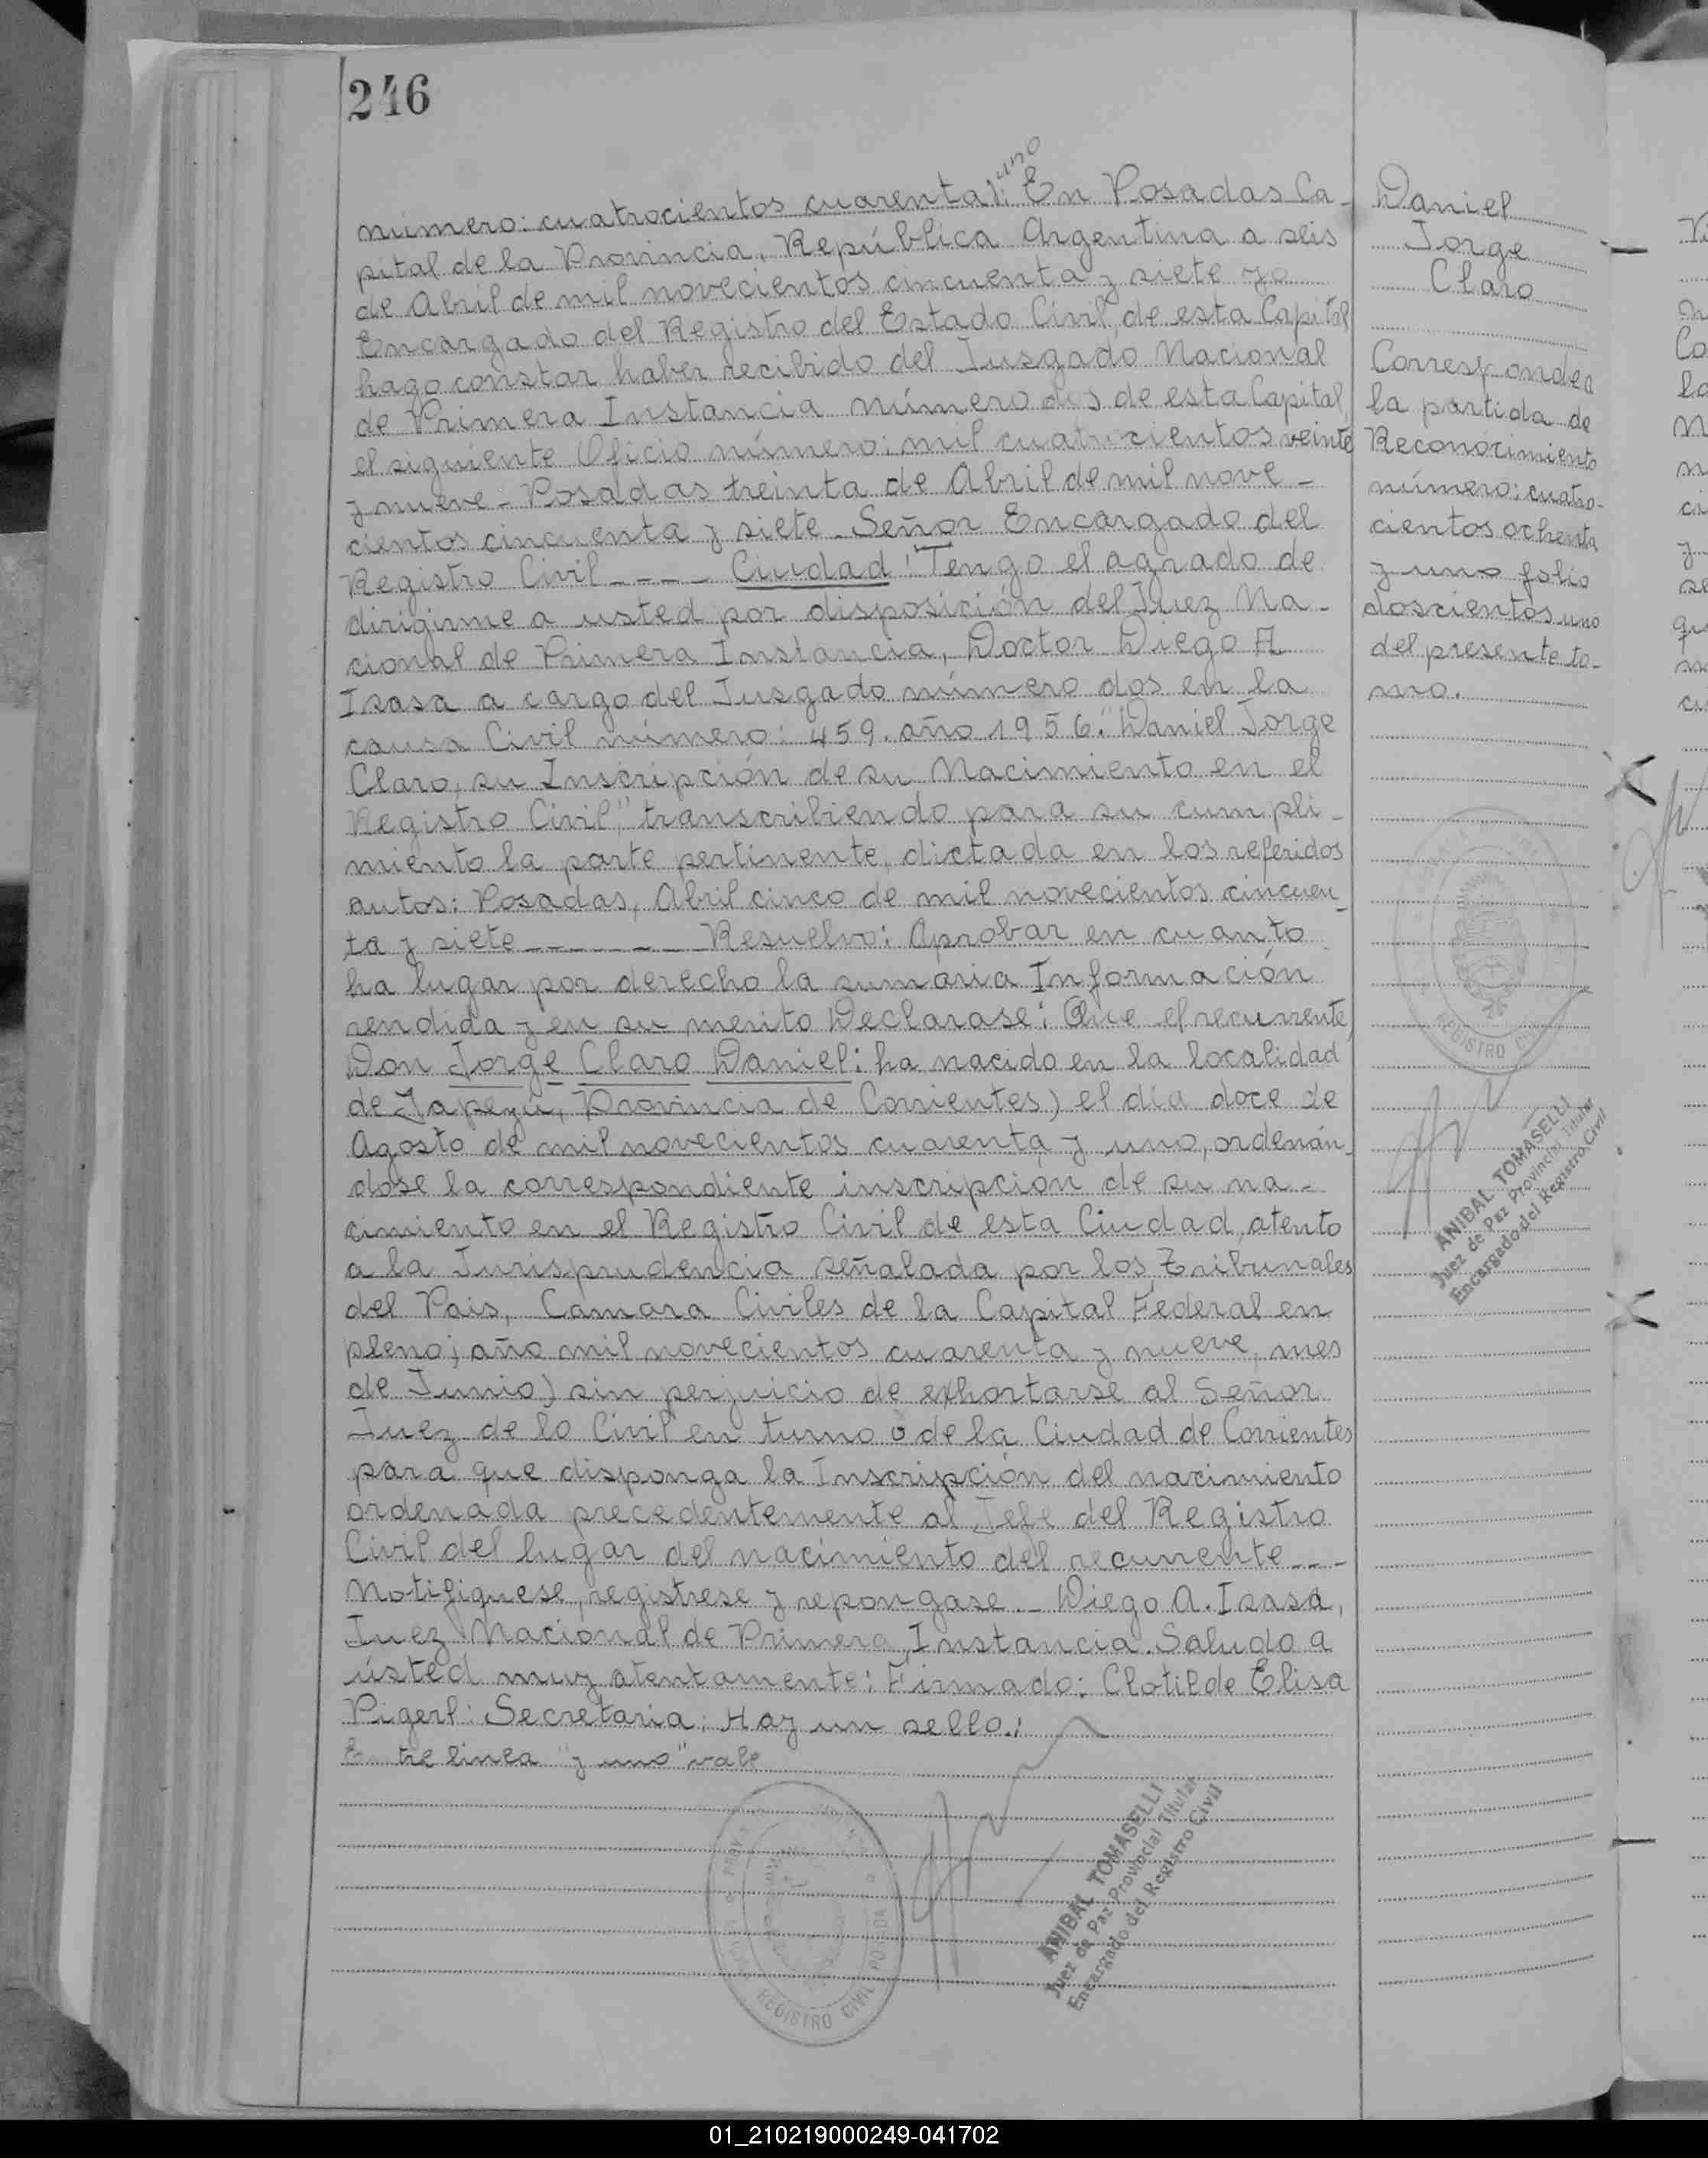 246
uno
número: cuatrocientos cuarenta y: En Posadas Ca-
pital de la Provincia, República Argentina a seis
de Abril de mil novecientos cincuenta y siete yo
Encargado del Registro del Estado Civil, de esta Capital
hago constar haber recibido del Jusgado Nacional
de Primera Instancia número dos de esta Capital,
el siguiente Oficio número: mil cuatrocientos veinte
y nueve - Posadas treinta de Abril de mil nove-
cientos cincuenta y siete - Señor Encargado del
Registro Civil - - - - Ciudad: Tengo el agrado de
dirigirme a usted por disposición del Juez Na-
cional de Primera Instancia, Doctor Diego A
Isasa a cargo del Jusgado número dos en la
causa Civil número: 459. año 1956. "Daniel Jorge
Claro, su Inscripción de su Nacimiento en el
Registro Civil," transcribiendo para su cumpli-
miento la parte pertinente, dictada en los referidos
autos: Posadas, Abril cinco de mil novecientos cincuen-
ta y siete - - - - - - - Resuelvo: Aprobar en cuanto
ha lugar por derecho la sumaria Información
rendida y en su merito Declarase: Que el recurrente,
Don Jorge Claro Daniel: ha nacido en la localidad
de Yapeyú, Provincia de Corrientes) el día doce de
Agosto de mil novecientos cuarenta y uno, ordenán-
dose la correspondiente inscripción de su na-
cimiento en el Registro Civil de esta Ciudad, atento
a la Jurisprudencia señalada por los Tribunales
del Pais, Camara Civiles de la Capital Federal en
pleno; año mil novecientos cuarenta y nueve, mes
de Junio) sin perjuicio de exhortarse al Señor
Juez de lo Civil en turno o de la Ciudad de Corrientes
para que disponga la Inscripción del nacimiento
ordenada precedentemente al Jefe del Registro
Civil del lugar del nacimiento del recurrente - - -
Notifiquese, registrese y repongase. - Diego A. Isasa,
Juez Nacional de Primera Instancia. Saludo a
usted muy atentamente: Firmado: Clotilde Elisa
Pigerl: Secretaria: Hay un sello.:
Entre linea "y uno" vale
REGISTRO CIVIL POSADA
ANIBAL TOMASELLI
Juez de Paz Provincial Titular
Encargado del Registro Civil
Daniel
Jorge
Claro
Corresponde a
la partida de
Reconocimiento
número: cuatro-
cientos ochenta
y uno folio
doscientos uno
del presente to-
mo.
REGISTRO CIVIL
ANIBAL TOMASELLI
Juez de Paz Provincial Titular
Encargado del Registro Civil
01_210219000249-041702